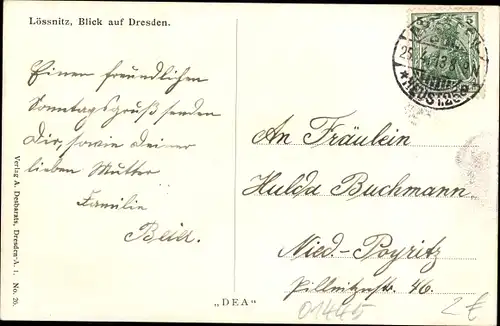 Lössnitz, Blick auf Dresden.
Einen freundlichen
Sonntagsgruß senden
Dir, sowie Deiner
lieben Mutter
Familie
An Fräulein
Hulda Buchmann
Nied.-Poyritz
Pillnitzerstr. 46.
Verlag A. Desbarats, Dresden-A. 1. No. 20.
„DEA"
01445
2€
5